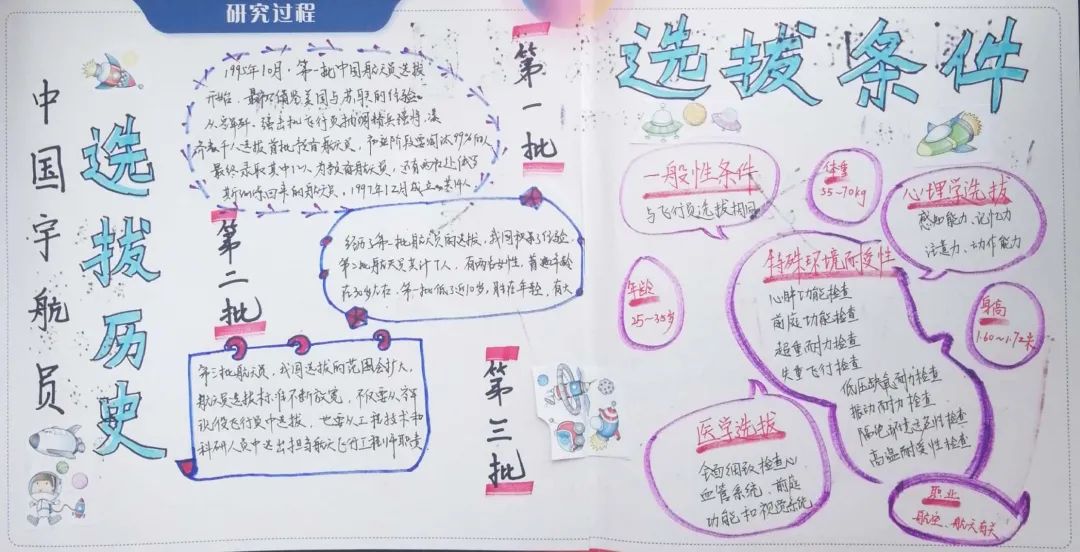 研究过程
中国宇航员
选拔历史
第一批
1995年10月,第一批中国航天员选拔
开始,最终借鉴美国与苏联的经验。
从空军歼、强击机飞行员抽调精兵强将,
千人选拔首批预备航天员,
最终录取其中12人为预备航天员,还有两名
回来的航天员,1997年12月成立
第二批
经历了第一批航天员的选拔,我国积累了经验,
第二批航天员共计7人,有两名女性,普遍年龄
在30岁左右,第一批低了近10岁,胜在年轻,有大
第三批
第三批航天员,我国选拔的范围会扩大,
航天员选拔标准不断放宽,不仅要从空军
现役飞行员中选拔,也要从工程技术和
科研人员中选出担当航天飞行工程师职责
选拔条件
一般性条件
与飞行员选拔相同
体重
55~70kg
心理学选拔
感知能力、记忆力
注意力、动作能力
年龄
25~35岁
特殊环境耐受性
心肺功能检查
前庭功能检查
超重耐力检查
失重飞行检查
低压缺氧耐力检查
振动耐力检查
隔绝 检查
高温耐受性检查
身高
1.60~1.72米
医学选拔
全面细致检查心
血管系统、前庭
功能和视觉系统
职业
航空、航天有关